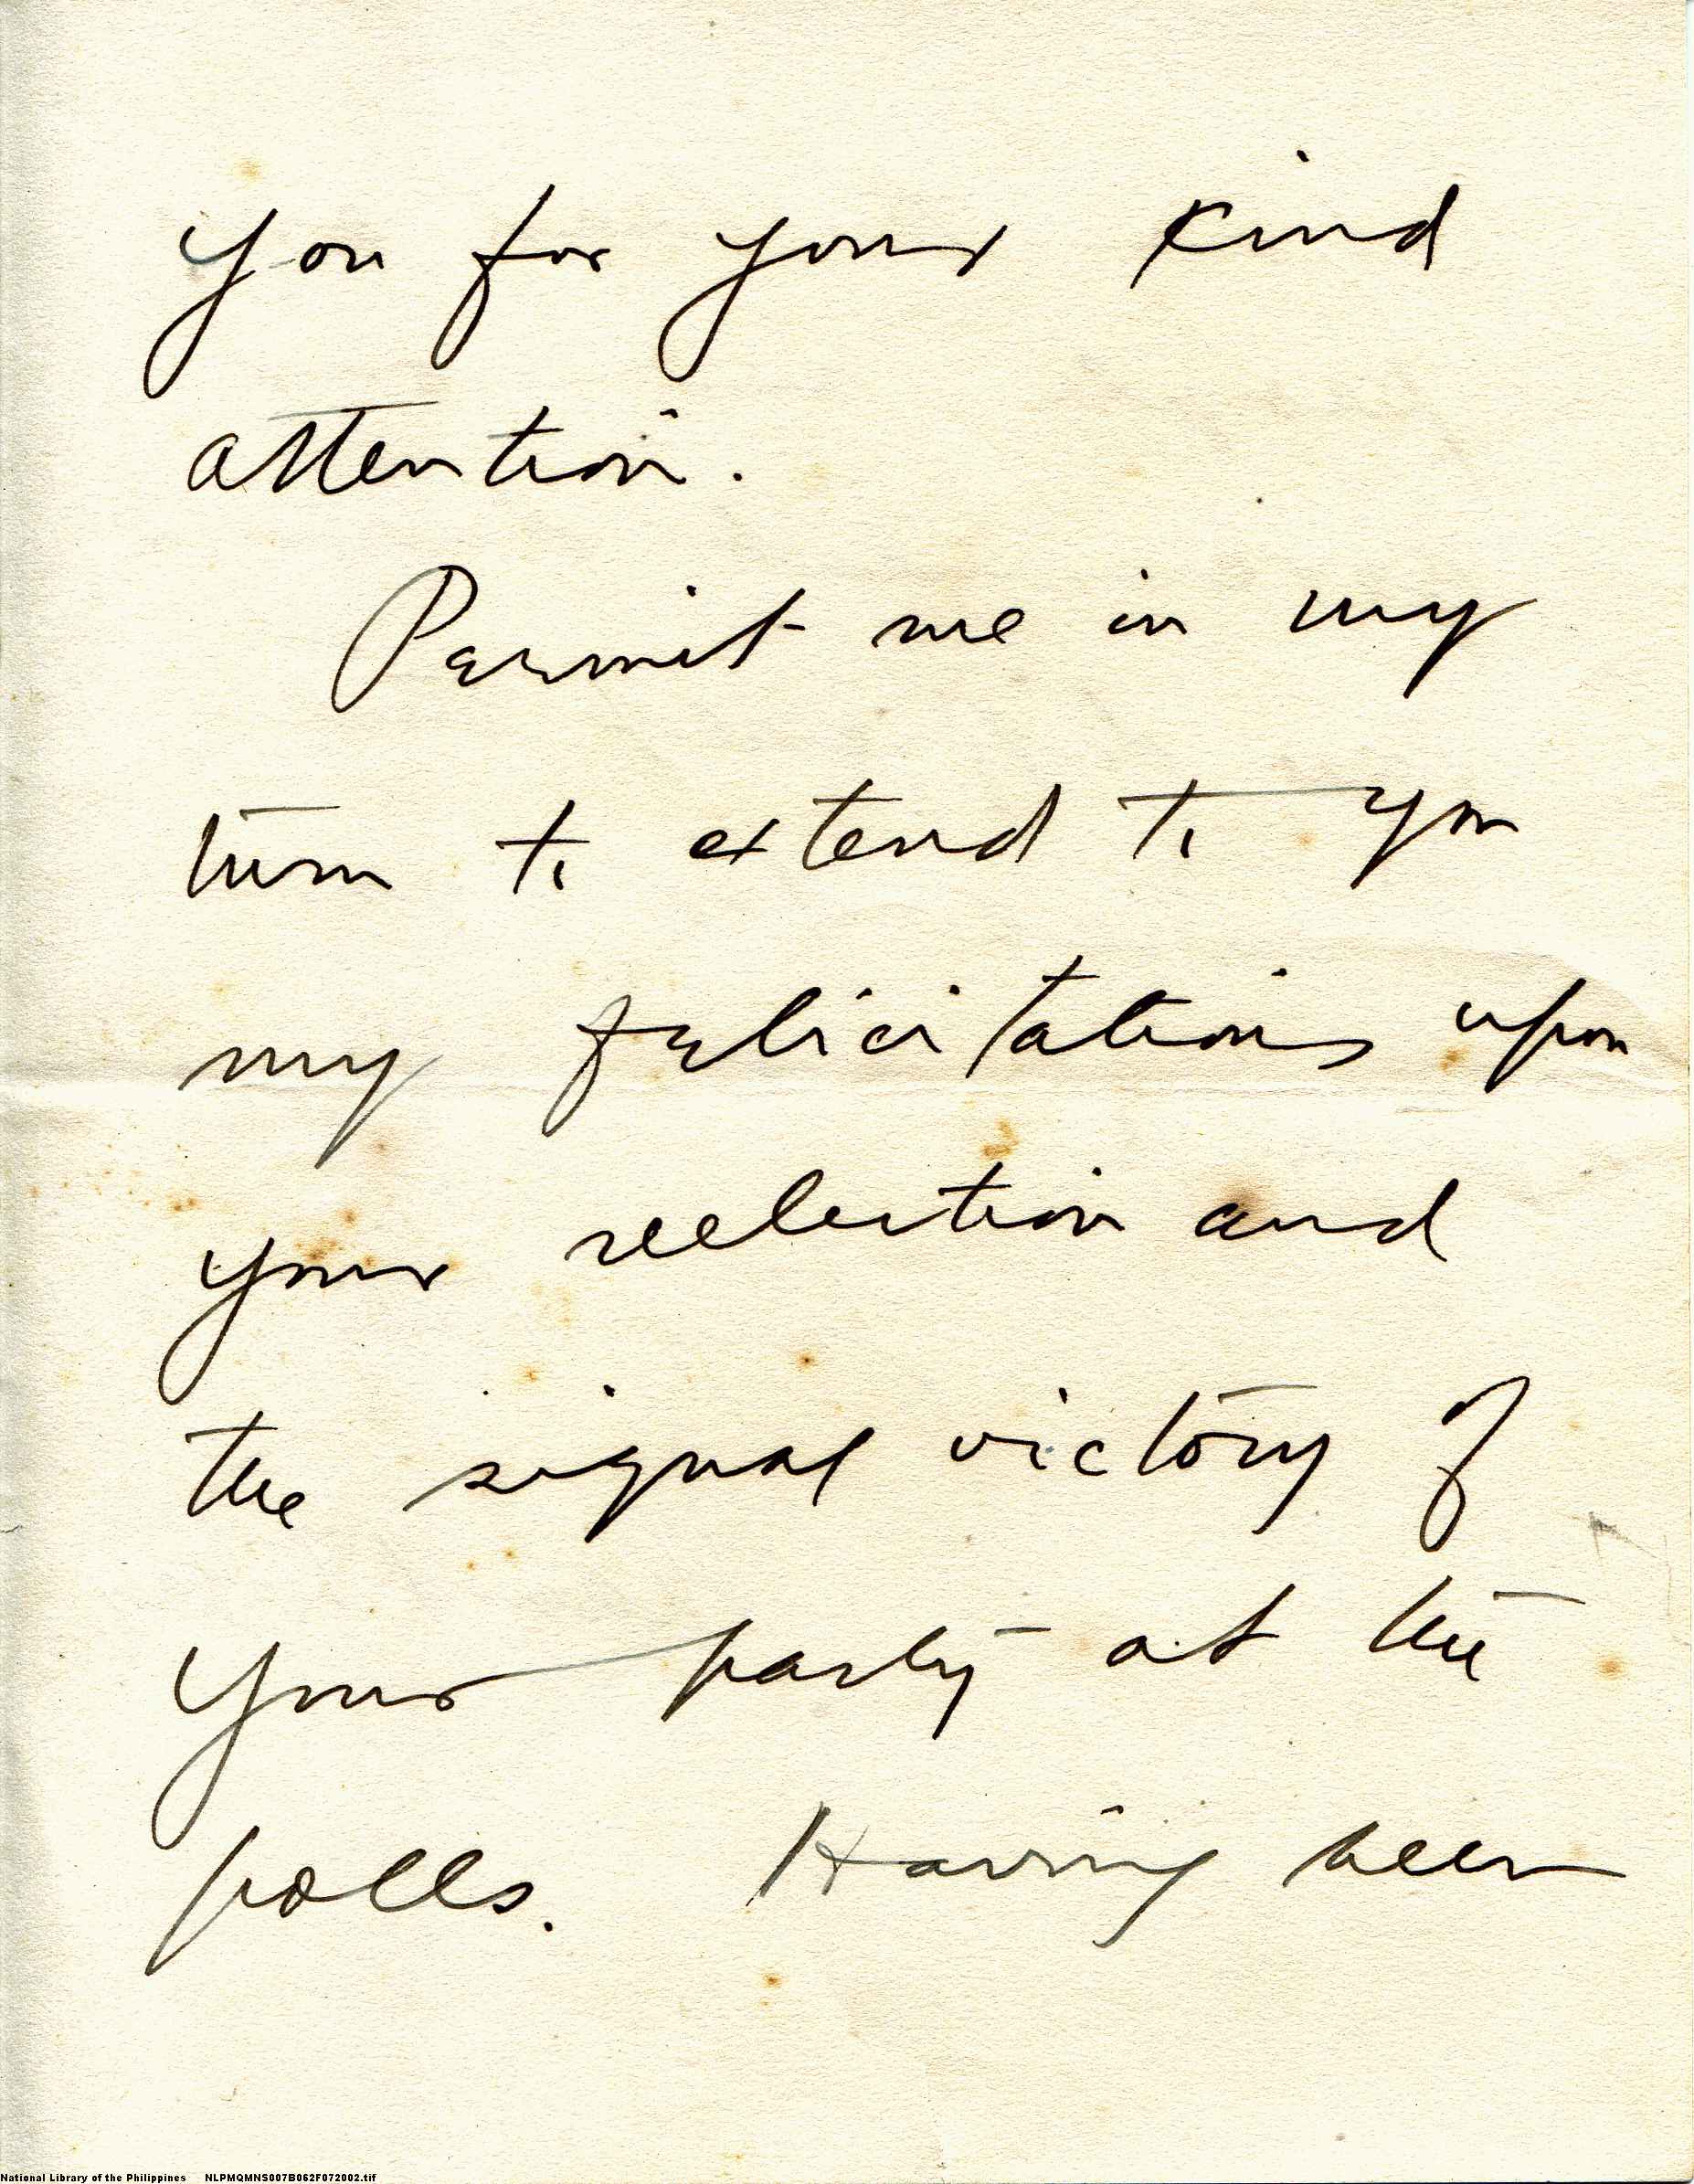 you for your kind
attention.
Permit me in my
turn to extend to you
my felicitations upon
your reelection and
the signal victory of
your party at the
polls. Having been
National Library of the Philippines NLPMQMNS007B062F072002.tif